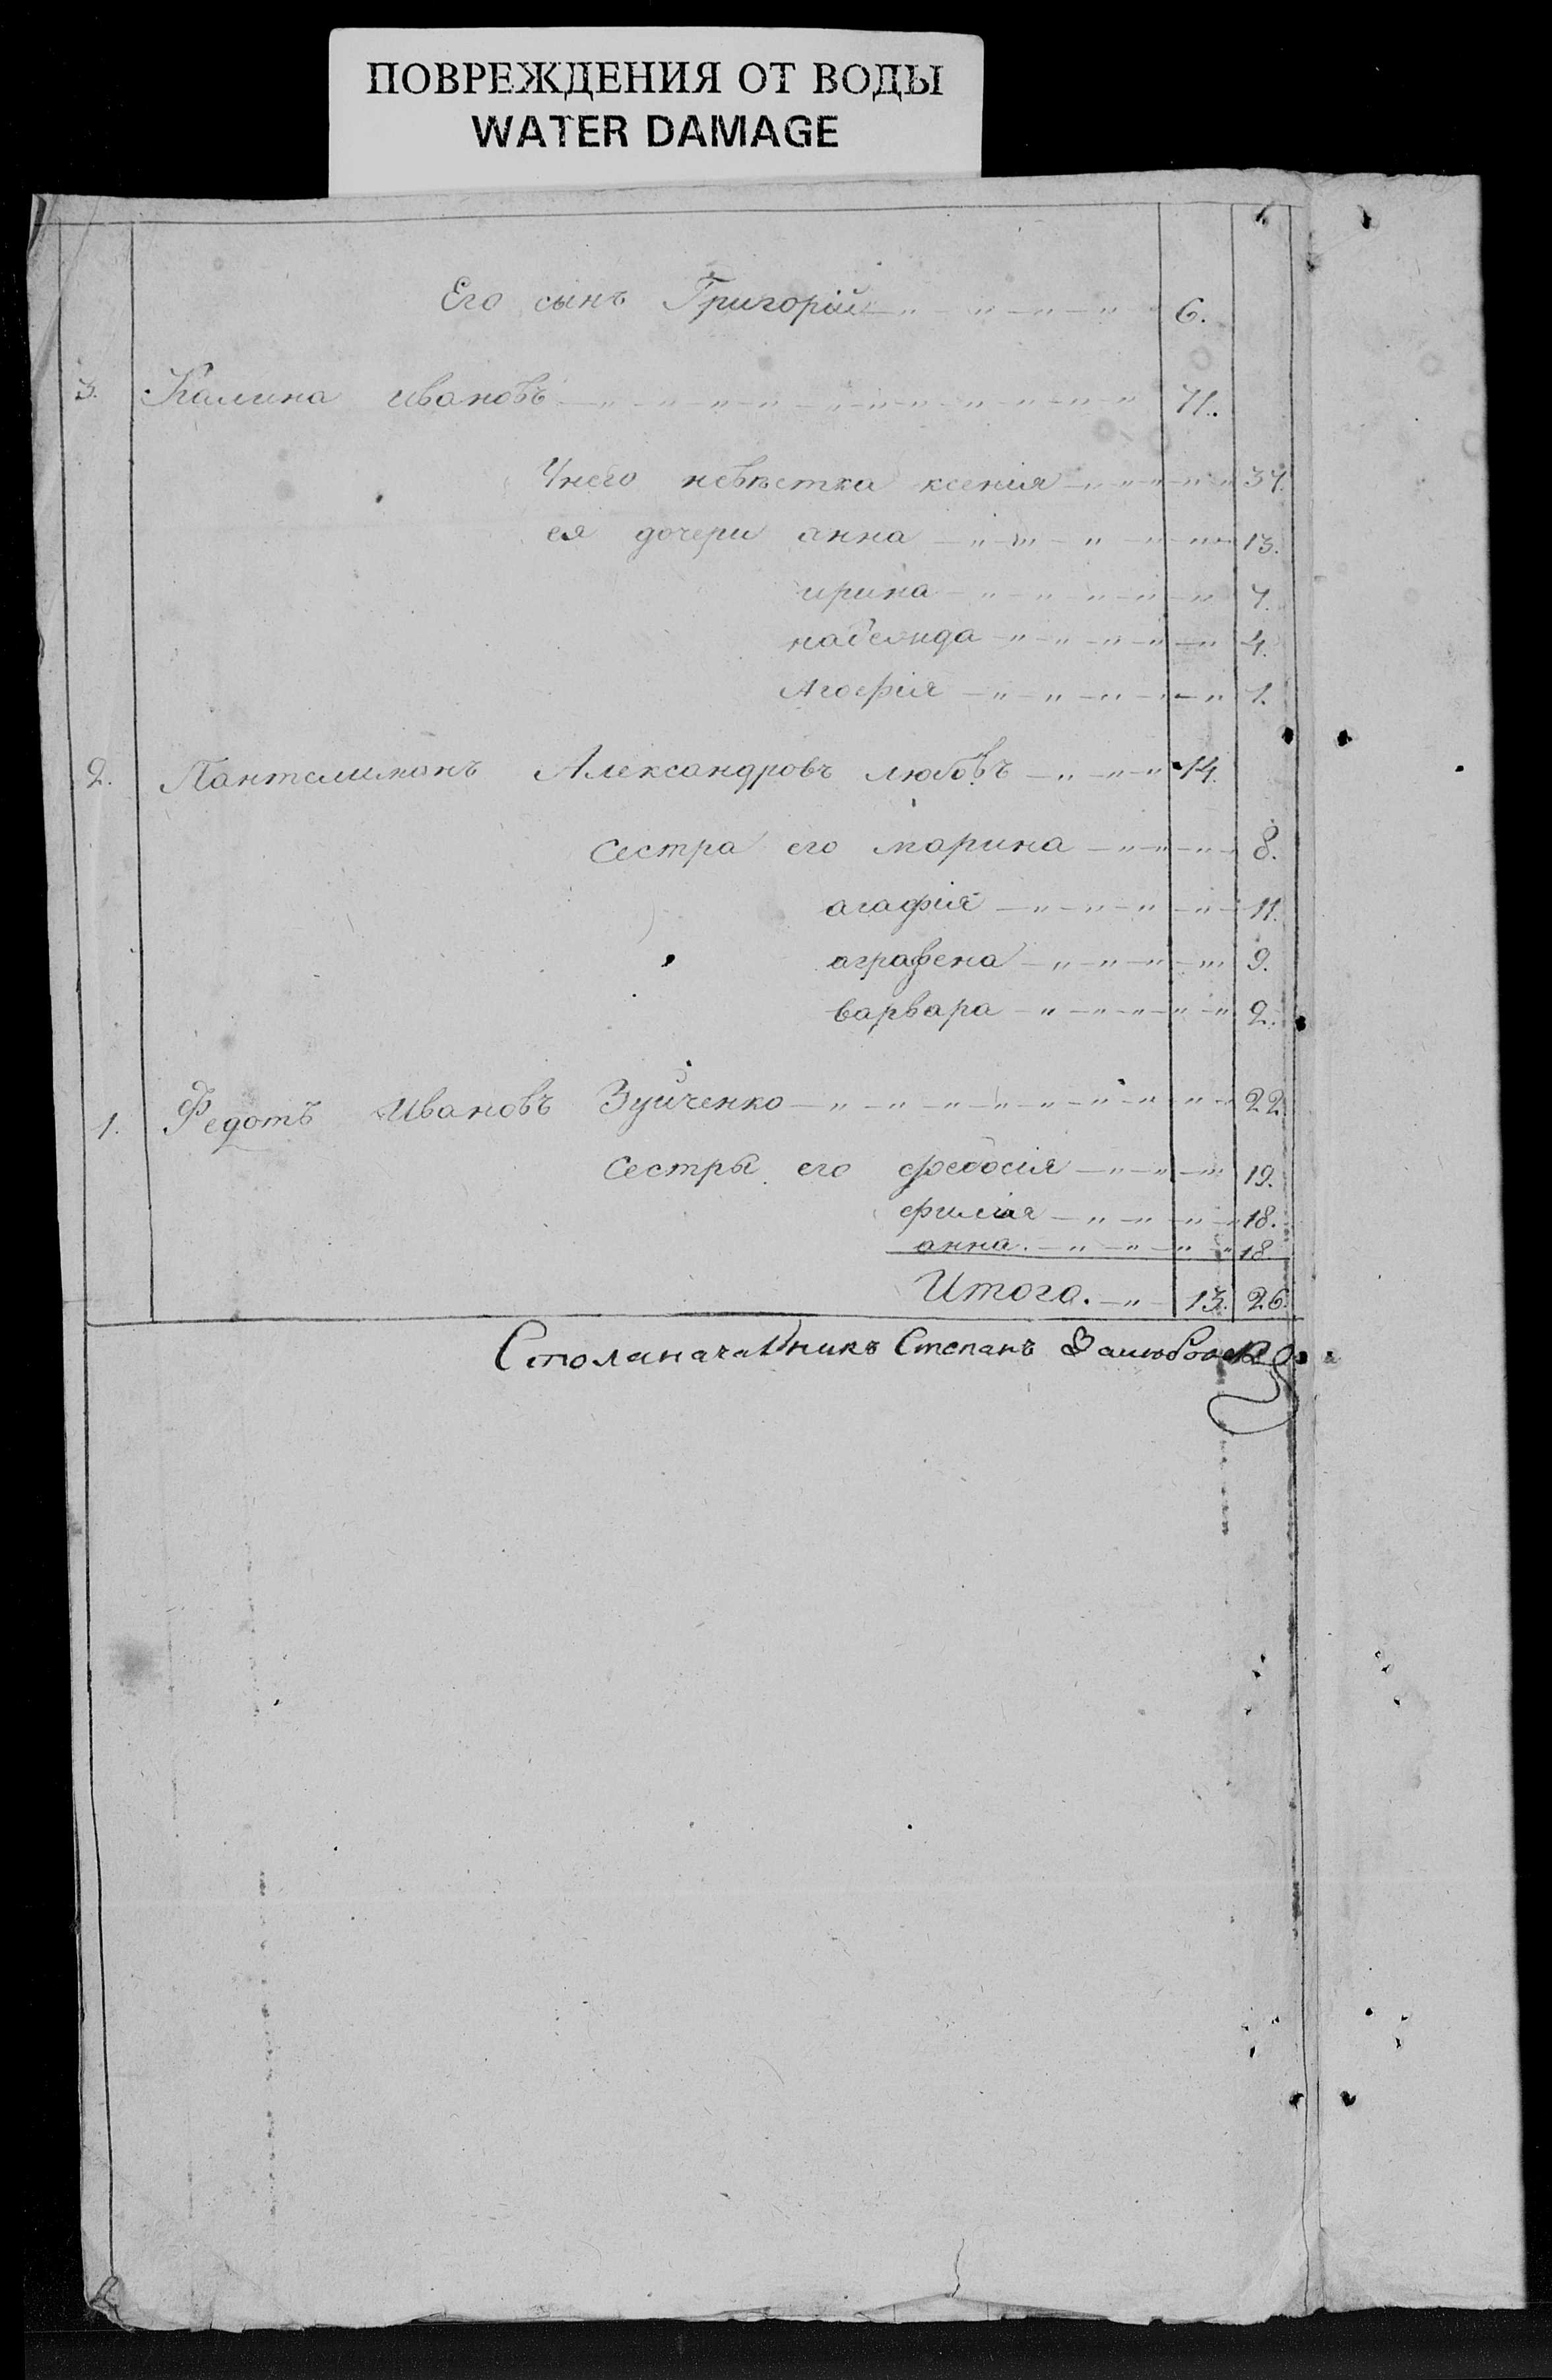 ПОВРЕЖДЕНИЯ ОТ ВОДЫ
WATER DAMAGE
Его сынъ Григорій 6.
3. Калина ивановъ 71.
Унего невѣстка ксенія 37.
ея дочери анна 13.
ирина 7.
4.
1.
2. Пантелимонъ Александровъ любовъ 14.
Сестра его марина 8.
агафія 11.
аграфена 9.
варвара 2.
1. Федотъ Ивановъ Зуйченко 22.
Сестры его феодосія 19.
18.
анна. 18.
Итого. 13. 26.
Столаначалникъ Степанъ